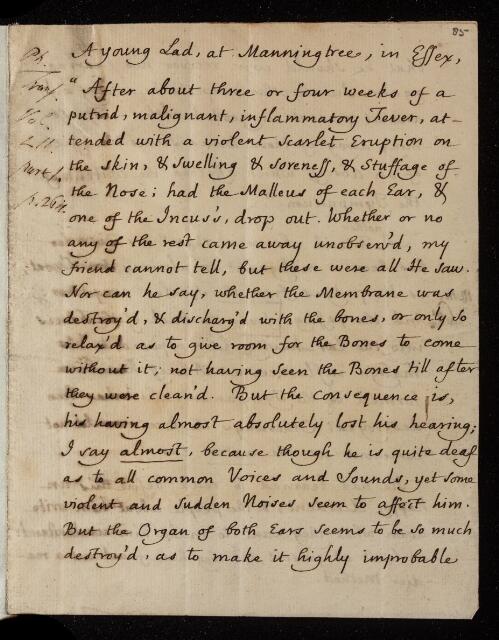 85
A young Lad, at Manningtree, in Essex,
Ph.
Trans.
Vol.
LII.
Part 1.
p. 264.
"After about three or four weeks of a
putrid, malignant, inflammatory Fever, at-
tended with a violent Scarlet Eruption on
the skin, & Swelling & Soreness, & Stuffage of
the Nose; had the Malleus of each Ear, &
one of the Incus's, drop out. Whether or no
any of the rest came away unobserv'd, my
friend cannot tell, but these were all He saw.
Nor can he say, whether the Membrane was
destroy'd, & discharg'd with the bones, or only so
relax'd as to give room for the Bones to come
without it; not having seen the Bones till after
they were clean'd. But the consequence is,
his having almost absolutely lost his hearing;
I say almost, because though he is quite deaf
as to all common Voices and Sounds, yet some
violent and sudden Noises seem to affect him.
But the Organ of both Ears seems to be so much
destroy'd, as to make it highly improbable